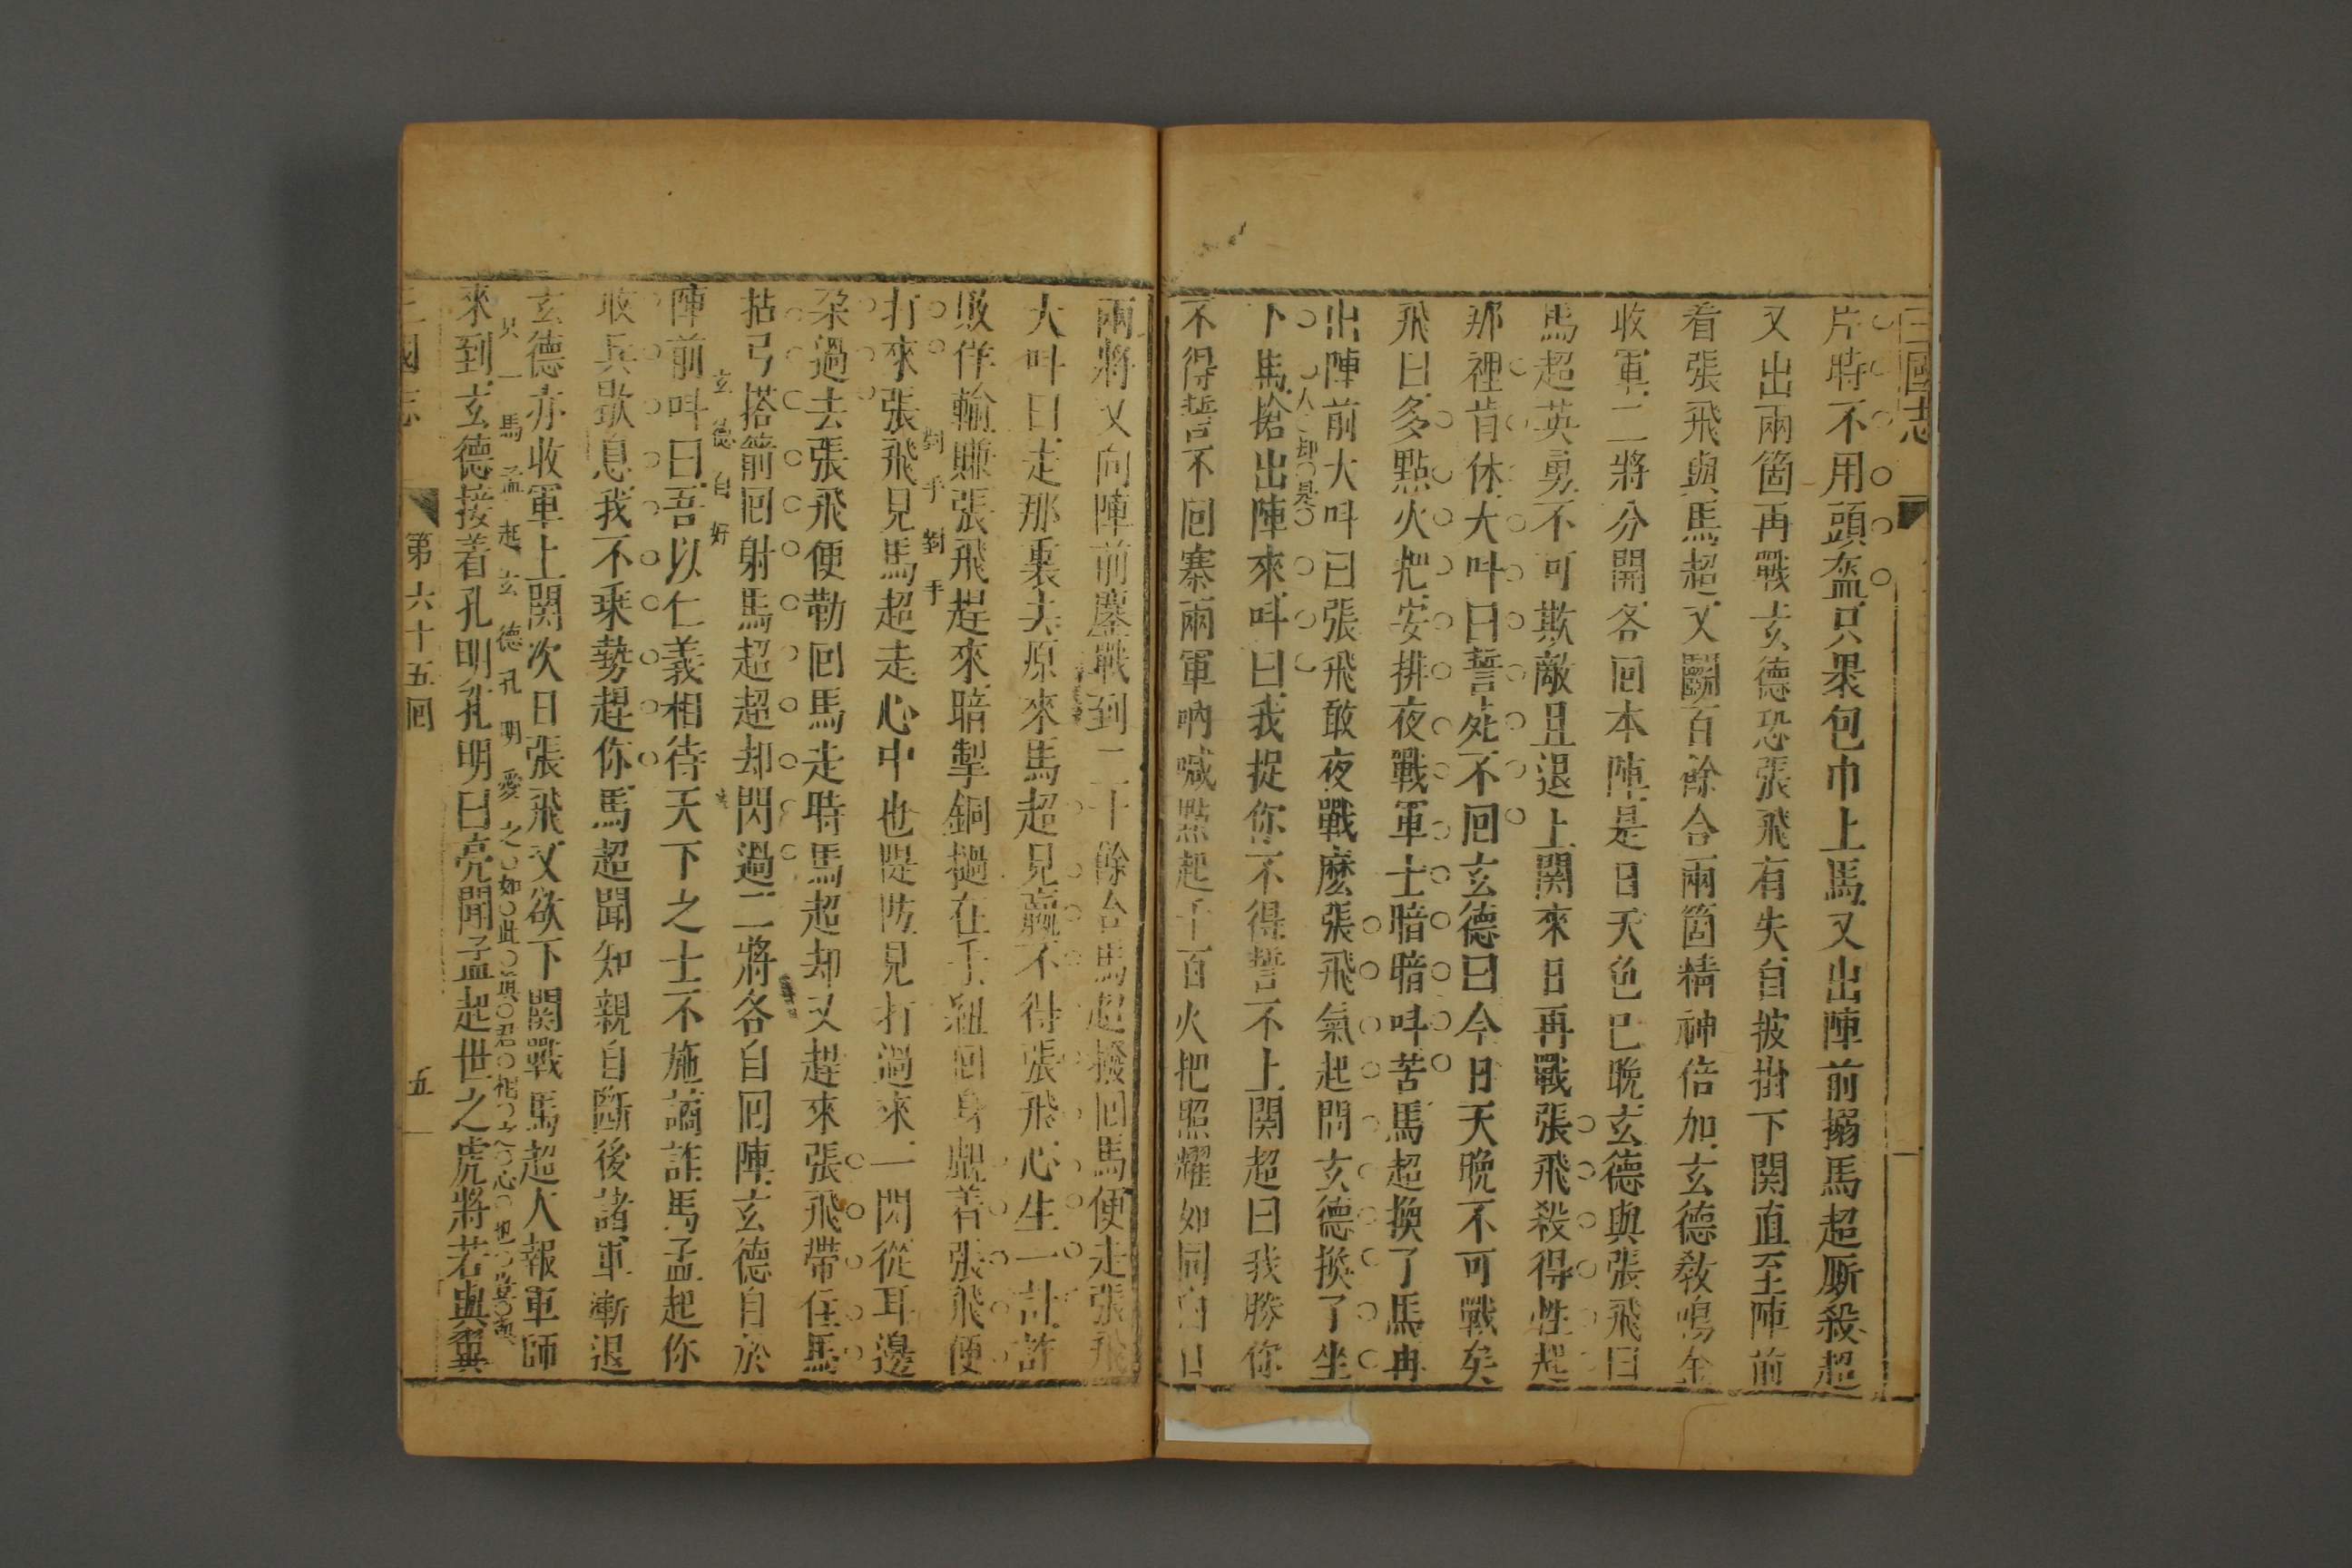 三國志
片時不用頭盔只裹包巾上馬又出陣前搦馬超厮殺超
又出兩箇再戰玄德恐張飛有失自披掛下関直至陣前
看張飛與馬超又鬬百餘合兩箇精神倍加玄德教鳴金
收軍二將分開各回本陣是日天色已晚玄德與張飛曰
馬超英勇不可欺敵且退上関來日再戰張飛殺得性起
那裡肯休大呌曰誓死不回玄德曰今日天晚不可戰矣
飛曰多點火把安排夜戰軍士暗暗呌苦馬超換了馬再
出陣前大呌曰張飛敢夜戰麼張飛氣起問玄德換了坐
下馬搶出陣來呌曰我捉你不得誓不上関超曰我勝你
不得誓不回寨兩軍吶喊點起千百火把照耀如同白日
兩將又向陣前鏖戰到二十餘合馬超撥回馬便走張飛
大呌曰走那裏去原來馬超見贏不得張飛心生一計詐
敗佯輸賺張飛趕來暗掣銅撾在手紐回身覷着張飛便
對手對手
打來張飛見馬超走心中也隄防見打過來一閃從耳邊
朶過去張飛便勒回馬走時馬超却又趕來張飛帶住馬
拈弓搭箭回射馬超超却閃過二將各自回陣玄德自於
玄德自好
陣前呌曰吾以仁義相待天下之士不施譎詐馬孟起你
收兵歇息我不乗勢趕你馬超聞知親自斷後諸軍漸退
玄德亦收軍上関次日張飛又欲下関戰馬超人報軍師
只一馬孟起玄德孔明愛之如此
來到玄德接着孔明孔明曰亮聞孟起世之虎將若與翼
三國志 第六十五回 五